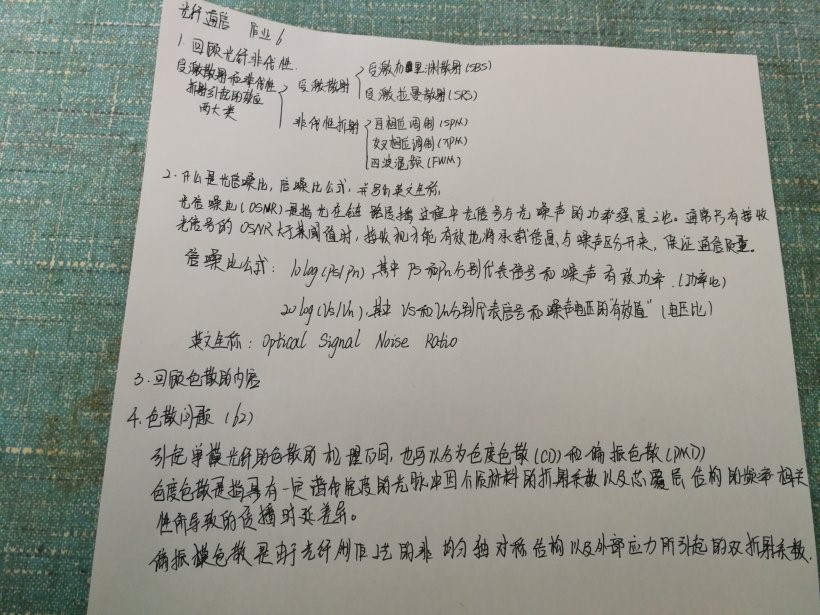 光纤通信 作业6
1. 回顾光纤非线性.
受激散射和非线性
折射引起的效应
两大类
受激散射
受激布里渊散射(SBS)
受激拉曼散射(SRS)
非线性折射
自相位调制(SPM)
交叉相位调制(XPM)
四波混频(FWM)
2. 什么是光信噪比,信噪比公式,并写出英文全称.
光信噪比(OSNR)是指光在链路传播过程中光信号与光噪声的功率强度之比。通常只有接收
光信号的OSNR大于某阈值时,接收机才能有效地将承载信息与噪声区分开来,保证通信质量。
信噪比公式: 10log(Ps/Pn),其中Ps和Pn分别代表信号和噪声有效功率.(功率比)
20log(Vs/Vn),其中Vs和Vn分别代表信号和噪声电压的"有效值"(电压比)
英文全称: Optical Signal Noise Ratio
3. 回顾色散的内容
4. 色散问题(62)
引起单模光纤的色散的机理不同,也可以分为色度色散(CD)和偏振色散(PMD)
色度色散是指具有一定谱线宽度的光脉冲因介质材料的折射系数以及芯覆层结构的频率相关
性而导致的传播时延差异。
偏振模色散是由于光纤制作工艺的非均匀轴对称结构以及外部应力所引起的双折射系数.